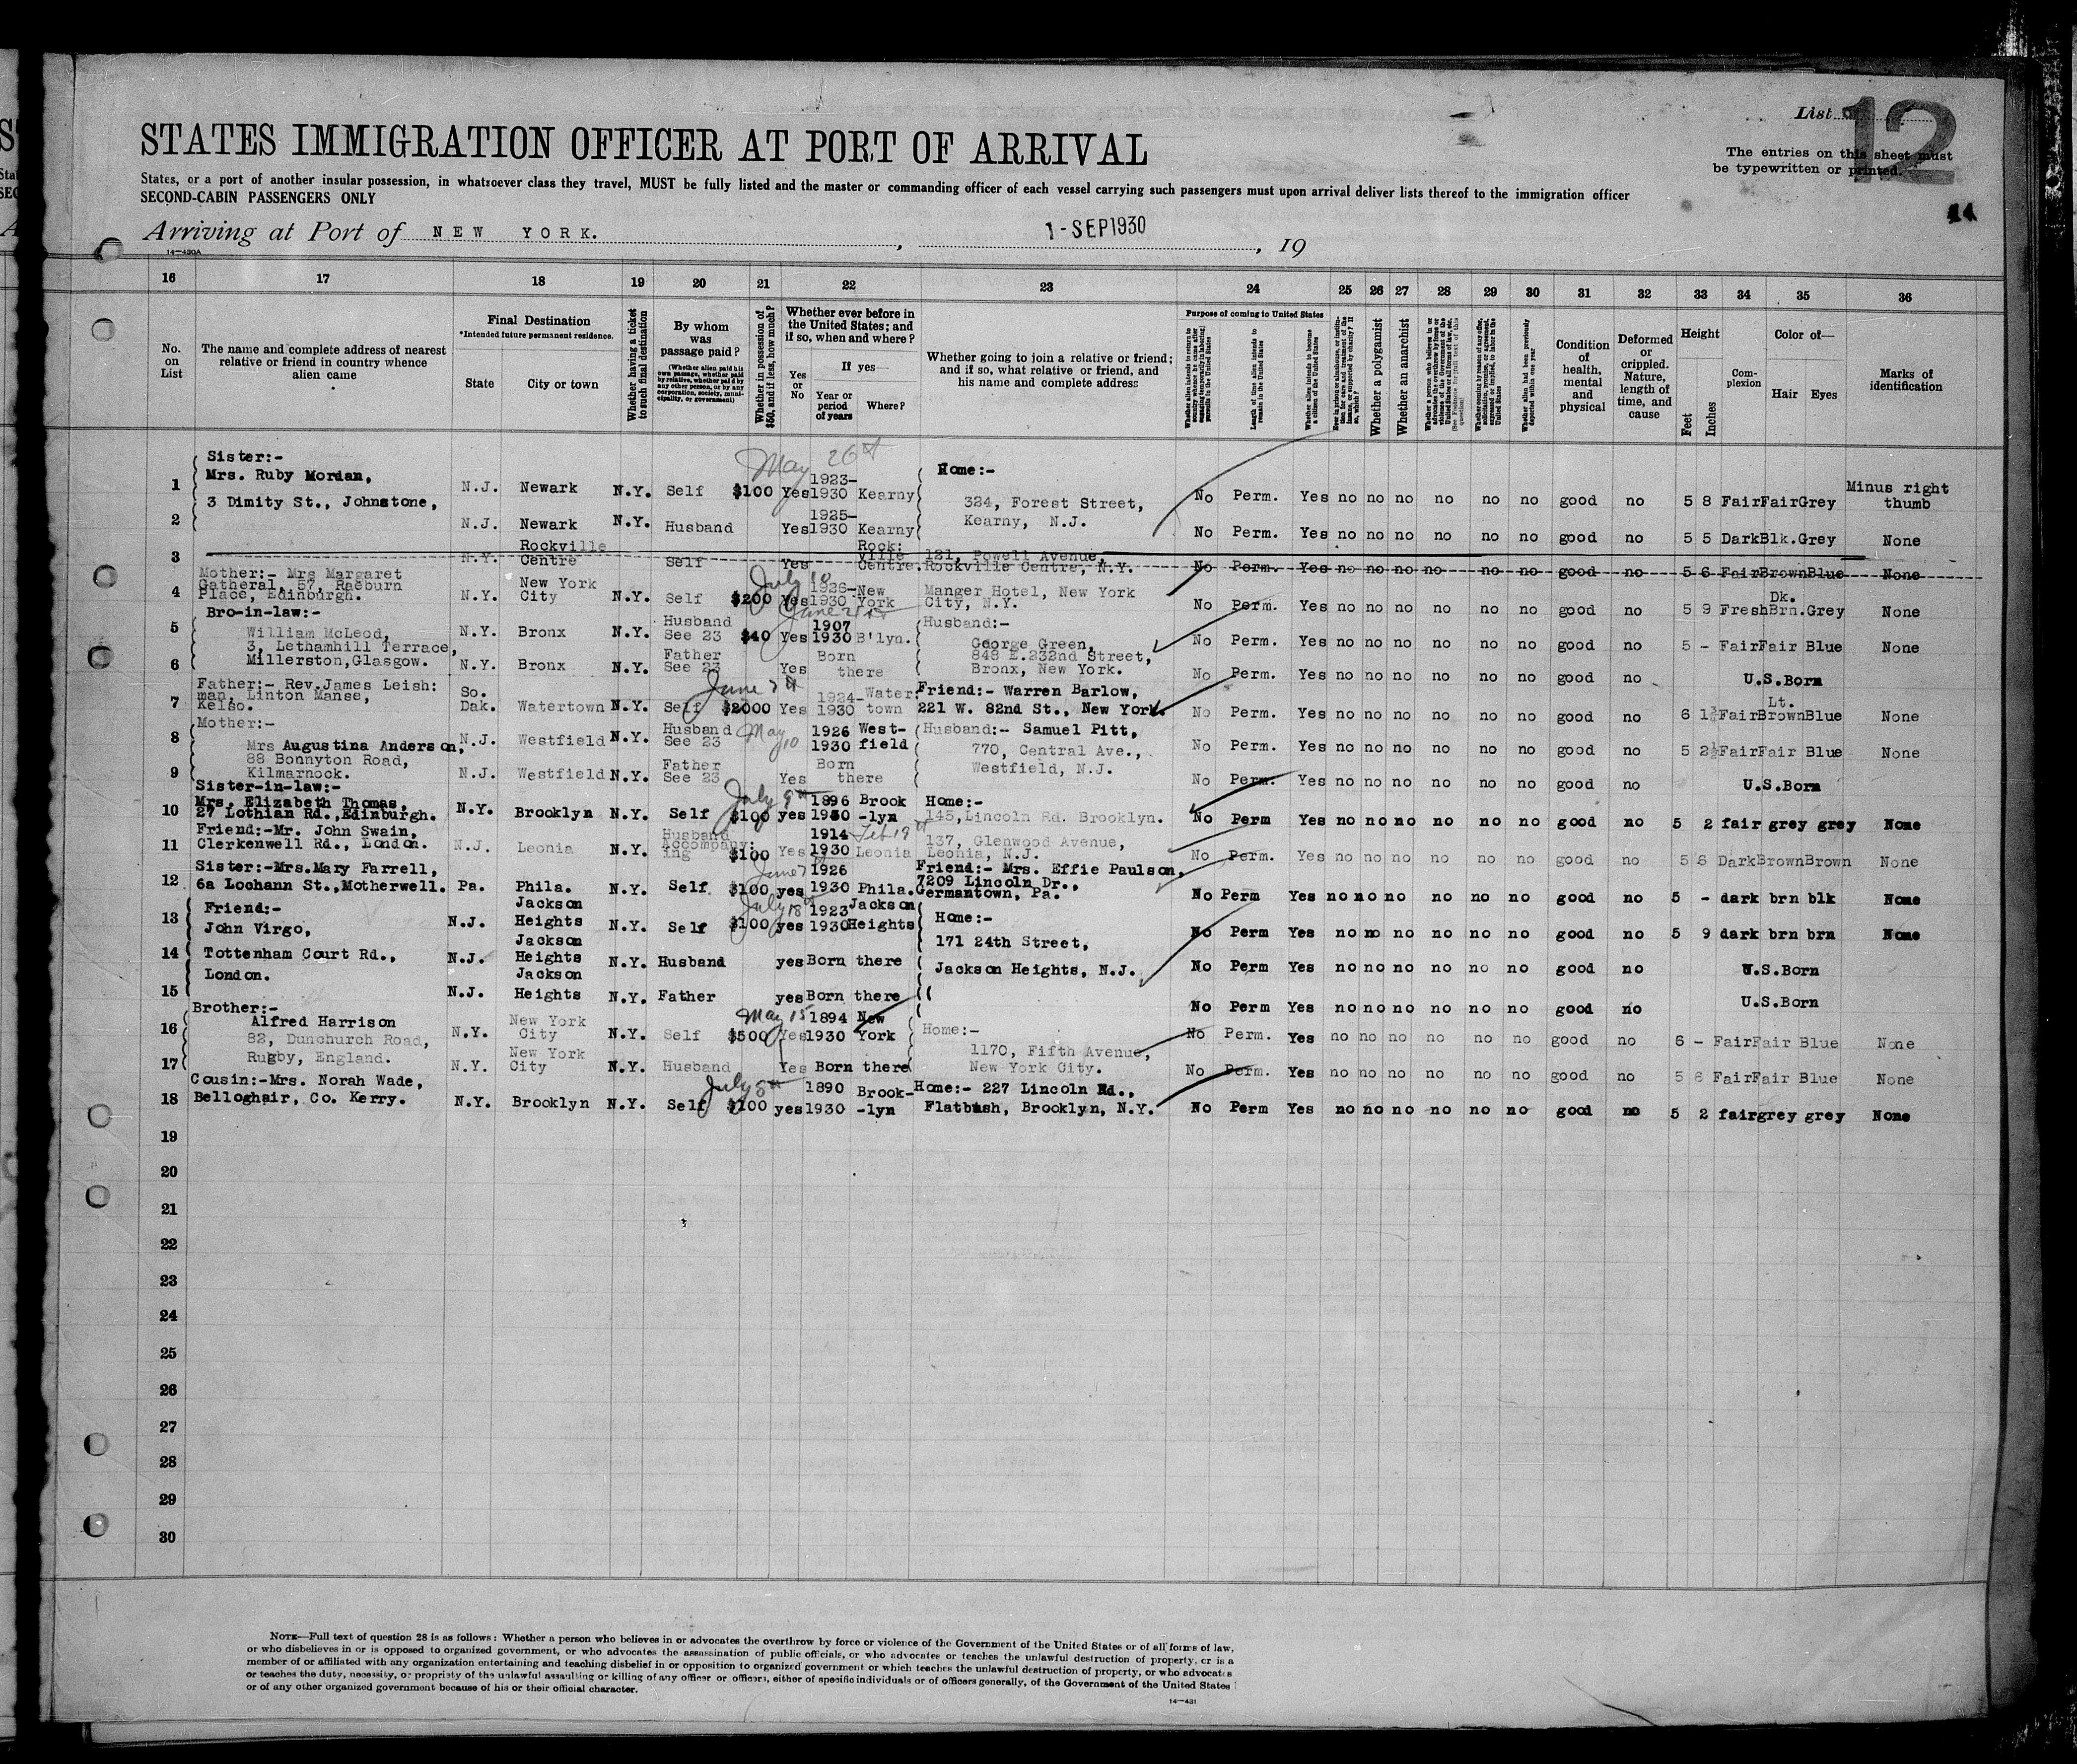 List
12
STATES IMMIGRATION OFFICER AT PORT OF ARRIVAL
The entries on this sheet must
be typewritten or printed.
States, or a port of another insular possession, in whatsoever class they travel, MUST be fully listed and the master or commanding officer of each vessel carrying such passengers must upon arrival deliver lists thereof to the immigration officer
SECOND-CABIN PASSENGERS ONLY
Arriving at Port of NEW YORK. , 1-SEP1930 , 19
14-430A
16 17 18 19 20 21 22 23 24 25 26 27 28 29 30 31 32 33 34 35 36
No. on List
The name and complete address of nearest relative or friend in country whence alien came
Final Destination
*Intended future permanent residence.
State City or town
Whether having a ticket to such final destination
By whom was passage paid?
(Whether alien paid his own passage, whether paid by relative, whether paid by any other person, or by any corporation, society, municipality, or government)
Whether in possession of $50, and if less, how much?
Whether ever before in the United States; and if so, when and where?
Yes or No
If yes—
Year or period of years Where?
Whether going to join a relative or friend; and if so, what relative or friend, and his name and complete address
Purpose of coming to United States
Length of time alien intends to remain in the United States
Whether alien intends to become a citizen of the United States
Whether a polygamist
Whether an anarchist
Whether alien had been previously deported within one year
Condition of health, mental and physical
Deformed or crippled. Nature, length of time, and cause
Height
Feet Inches
Complexion
Color of—
Hair Eyes
Marks of identification
May 26th
Sister:-
1 Mrs. Ruby Mordan, N.J. Newark N.Y. Self $100 Yes 1923-1930 Kearny Home:- No Perm. Yes no no no no no no good no 5 8 Fair Fair Grey Minus right thumb
3 Dimity St., Johnstone, 324, Forest Street,
2 N.J. Newark N.Y. Husband Yes 1925-1930 Kearny Kearny, N.J. No Perm. Yes no no no no no no good no 5 5 Dark Blk. Grey None
3 N.Y. Rockville Centre Self Yes Rock:ville Centre. 121, Powell Avenue, Rockville Centre, N.Y. No Perm. Yes no no no no no no good no 5 6 Fair Brown Blue None
Mother:- Mrs Margaret
Catheral, 57, Raeburn
4 Place, Edinburgh. N.Y. New York City N.Y. Self $200 Yes July 10 1930 New York Manger Hotel, New York City, N.Y. No Perm. Yes no no no no no no good no 5 9 Fresh Dk. Brn. Grey None
Bro-in-law:-
5 William McLeod, N.Y. Bronx N.Y. Husband See 23 $40 Yes 1907 1930 B'lyn. Husband:- George Green, No Perm. Yes no no no no no no good no 5 - Fair Fair Blue None
3, Lethamhill Terrace, 848 E.232nd Street,
6 Millerston,Glasgow. N.Y. Bronx N.Y. Father See 23 Yes Born there Bronx, New York. No Perm. Yes no no no no no no good no U.S.Born
Father:- Rev.James Leish:
man, Linton Manse,
7 Kelso. So. Dak. Watertown N.Y. Self $2000 Yes 1924-1930 Water:town Friend:- Warren Barlow, 221 W. 82nd St., New York. No Perm. Yes no no no no no no good no 6 Fair Lt. Brown Blue None
Mother:-
8 Mrs Augustina Anderson, N.J. Westfield N.Y. Husband See 23 May 10 1926 1930 West-field Husband:- Samuel Pitt, No Perm. Yes no no no no no no good no 5 2½ Fair Fair Blue None
88 Bonnyton Road, 770, Central Ave.,
9 Kilmarnock. N.J. Westfield N.Y. Father See 23 Yes Born there Westfield, N.J. No Perm. Yes no no no no no no good no U.S.Born
Sister-in-law:-
Mrs. Elizabeth Thomas,
10 27 Lothian Rd.,Edinburgh. N.Y. Brooklyn N.Y. Self $100 yes July 9th 1896 1930 Brook-lyn Home:- 145,Lincoln Rd. Brooklyn. No Perm Yes no no no no no no good no 5 2 fair grey grey None
Friend:-Mr. John Swain,
11 Clerkenwell Rd., London. N.J. Leonia N.Y. Husband Accompany:ing $100 Yes 1914 1930 Leonia 137, Glenwood Avenue, Leonia, N.J. No Perm. Yes no no no no no no good no 5 Dark Brown Brown None
Sister:-Mrs.Mary Farrell,
12 6a Lochann St.,Motherwell. Pa. Phila. N.Y. Self $100 yes June 7 1926 1930 Phila. Friend:- Mrs. Effie Paulson, 7209 Lincoln Dr., Germantown, Pa. No Perm Yes no no no no no no good no 5 - dark brn blk None
Friend:-
13 John Virgo, N.J. Jackson Heights N.Y. Self $100 yes July 18 1923 1930 Jackson Heights Home:- No Perm Yes no no no no no no good no 5 9 dark brn brn None
171 24th Street,
14 Tottenham Court Rd., N.J. Jackson Heights N.Y. Husband yes Born there Jackson Heights, N.J. No Perm Yes no no no no no no good no U.S.Born
London.
15 N.J. Jackson Heights N.Y. Father yes Born there No Perm Yes no no no no no no good no U.S.Born
Brother:-
16 Alfred Harrison N.Y. New York City N.Y. Self $500 Yes May 15 1894 1930 New York Home:- No Perm. Yes no no no no no no good no 6 - Fair Fair Blue None
82, Dunchurch Road, 1170, Fifth Avenue,
17 Rugby, England. N.Y. New York City N.Y. Husband Yes Born there New York City. No Perm. Yes no no no no no no good no 5 6 Fair Fair Blue None
Cousin:-Mrs. Norah Wade,
18 Belloghair, Co. Kerry. N.Y. Brooklyn N.Y. Self $100 yes July 8th 1890 1930 Brook-lyn Home:- 227 Lincoln Rd., Flatbush, Brooklyn, N.Y. No Perm Yes no no no no no no good no 5 2 fair grey grey None
19
20
21
22
23
24
25
26
27
28
29
30
NOTE—Full text of question 28 is as follows: Whether a person who believes in or advocates the overthrow by force or violence of the Government of the United States or of all forms of law,
or who disbelieves in or is opposed to organized government, or who advocates the assassination of public officials, or who advocates or teaches the unlawful destruction of property, or is a
member of or affiliated with any organization entertaining and teaching disbelief in or opposition to organized government or which teaches the unlawful destruction of property, or who advocates
or teaches the duty, necessity, or propriety of the unlawful assaulting or killing of any officer or officers, either of specific individuals or of officers generally, of the Government of the United States
or of any other organized government because of his or their official character.
14-431